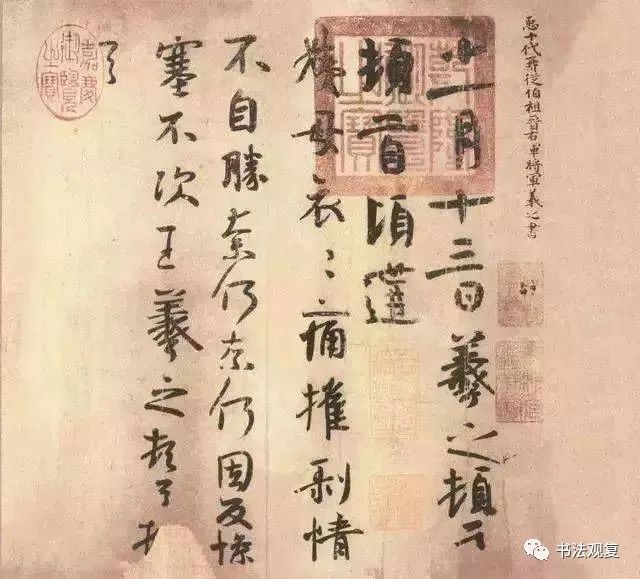 臣十代再從伯祖晉右軍將軍羲之書
十一月十三日羲之頓首
頓首頃遘
姨母哀〻痛摧剝情
不自勝奈何奈何因反慘
塞不次王羲之頓首頓
首
乾隆御覽之寶
嘉慶御覽之寶
书法观复